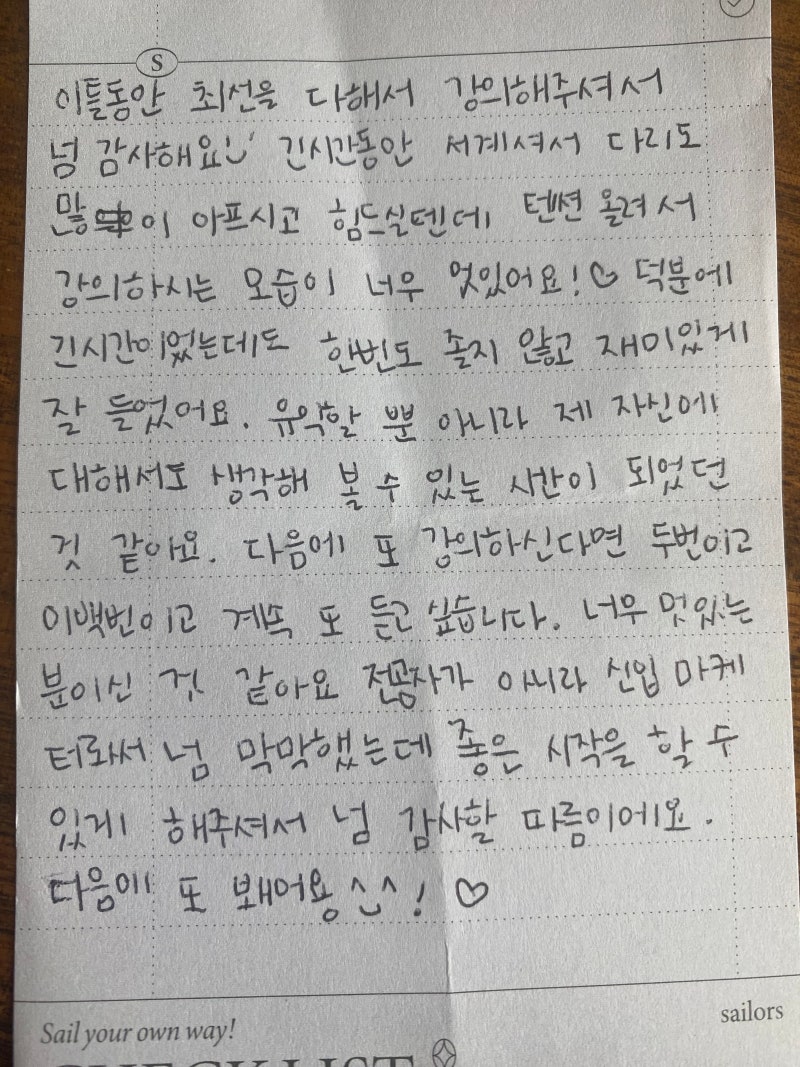 S
이틀동안 최선을 다해서 강의해주셔서
넘 감사해요!¨ 긴시간동안 서계셔서 다리도
많이 아프시고 힘드실텐데 텐션 올려서
강의하시는 모습이 너무 멋있어요!♡ 덕분에
긴시간이었는데도 한번도 졸지 않고 재미있게
잘 들었어요. 유익할 뿐 아니라 제 자신에
대해서도 생각해 볼 수 있는 시간이 되었던
것 같아요. 다음에 또 강의하신다면 두번이고
이백번이고 계속 또 듣고 싶습니다. 너무 멋있는
분이신 것 같아요 전공자가 아니라 신입 마케
터로써 넘 막막했는데 좋은 시작을 할 수
있게 해주셔서 넘 감사할 따름이에요.
다음에 또 봬어용 ^_^ ! ♡
sailors
Sail your own way!
CHECK LIST